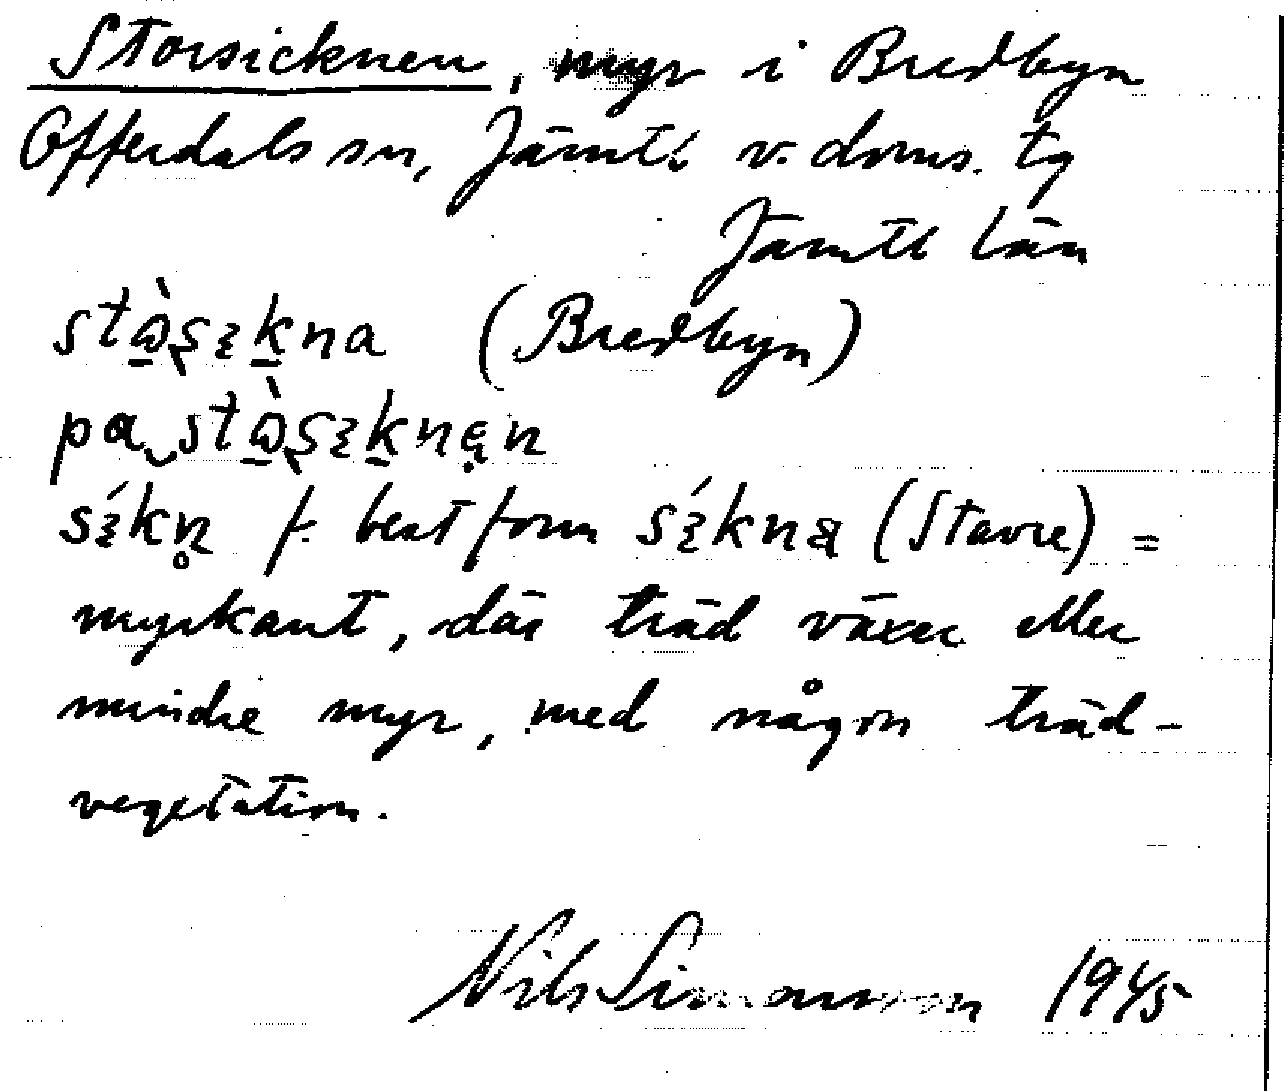 Storsicknen, myr i Bredbyn
Offerdals sn, Jämtl. v. doms. tg
Jämtl län
stɷ̀ʂɛkna (Bredbyn)
pa stɷ̀ʂɛknen
sɛ́kn̥ f. best form sɛ́kna (Stavre) =
myrkant, där träd växer eller
mindre myr, med någon träd-
vegetation.
Nils Simonsson 1945